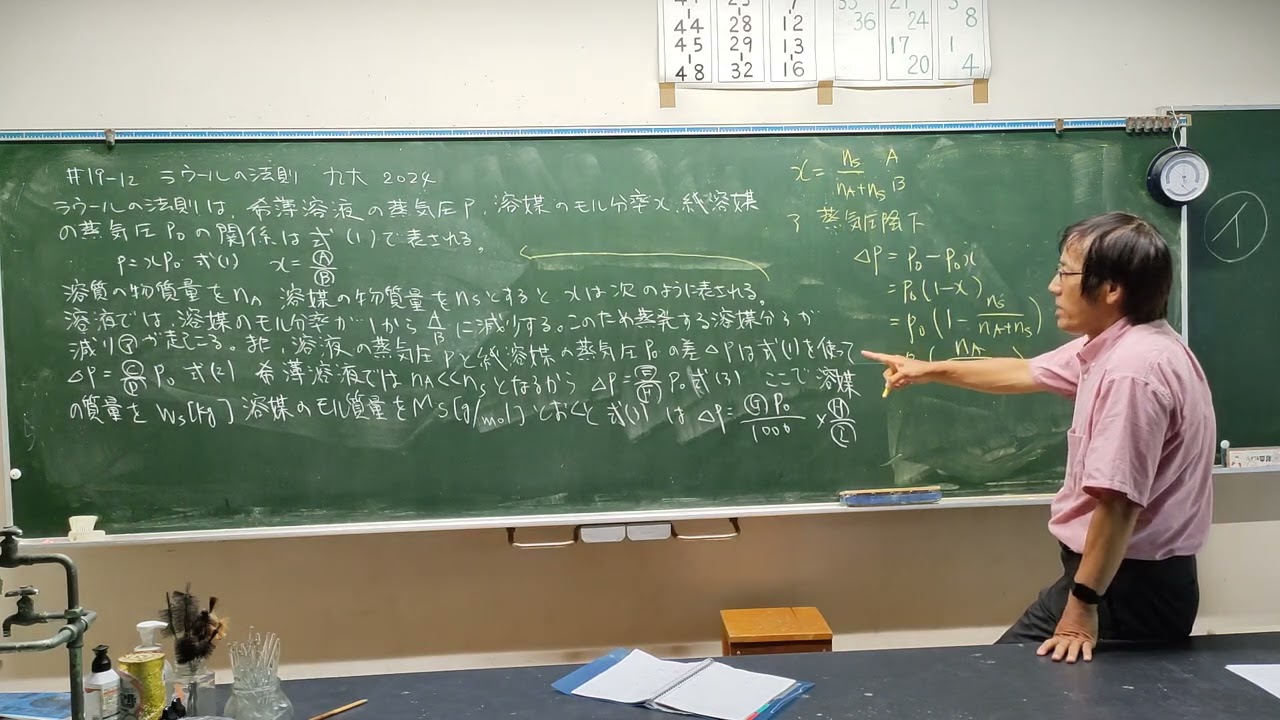 44 28 12 36 24 8
45 29 13 17 1
48 32 16 20 4
#19-12 ラウールの法則 九大 2024
ラウールの法則は、希薄溶液の蒸気圧P、溶媒のモル分率x、純溶媒
の蒸気圧P₀の関係は式(1)で表される。
P=xP₀ 式(1) x=Ⓐ/Ⓑ
溶質の物質量をnA 溶媒の物質量をnsとするとxは次のように表される。
溶液では、溶媒のモル分率が1からA/Bに減りする。このため蒸発する溶媒分子が
減り㋐が起こる。また、溶液の蒸気圧Pと純溶媒の蒸気圧P₀の差△Pは式(1)を使って
△P=Ⓒ/Ⓓ P₀ 式(2) 希薄溶液ではnA<<nsとなるから △P=Ⓔ/Ⓗ P₀ 式(3) ここで溶媒
の質量をWs[kg] 溶媒のモル質量をMs[g/mol]とおくと式(3)は △P=Ⓖ P₀/1000 ×Ⓗ/Ⓘ
x= ns/(nA+ns) A B
ア 蒸気圧降下
△P=P₀-P₀x
=P₀(1-x)
=P₀(1-ns/(nA+ns))
nA
イ